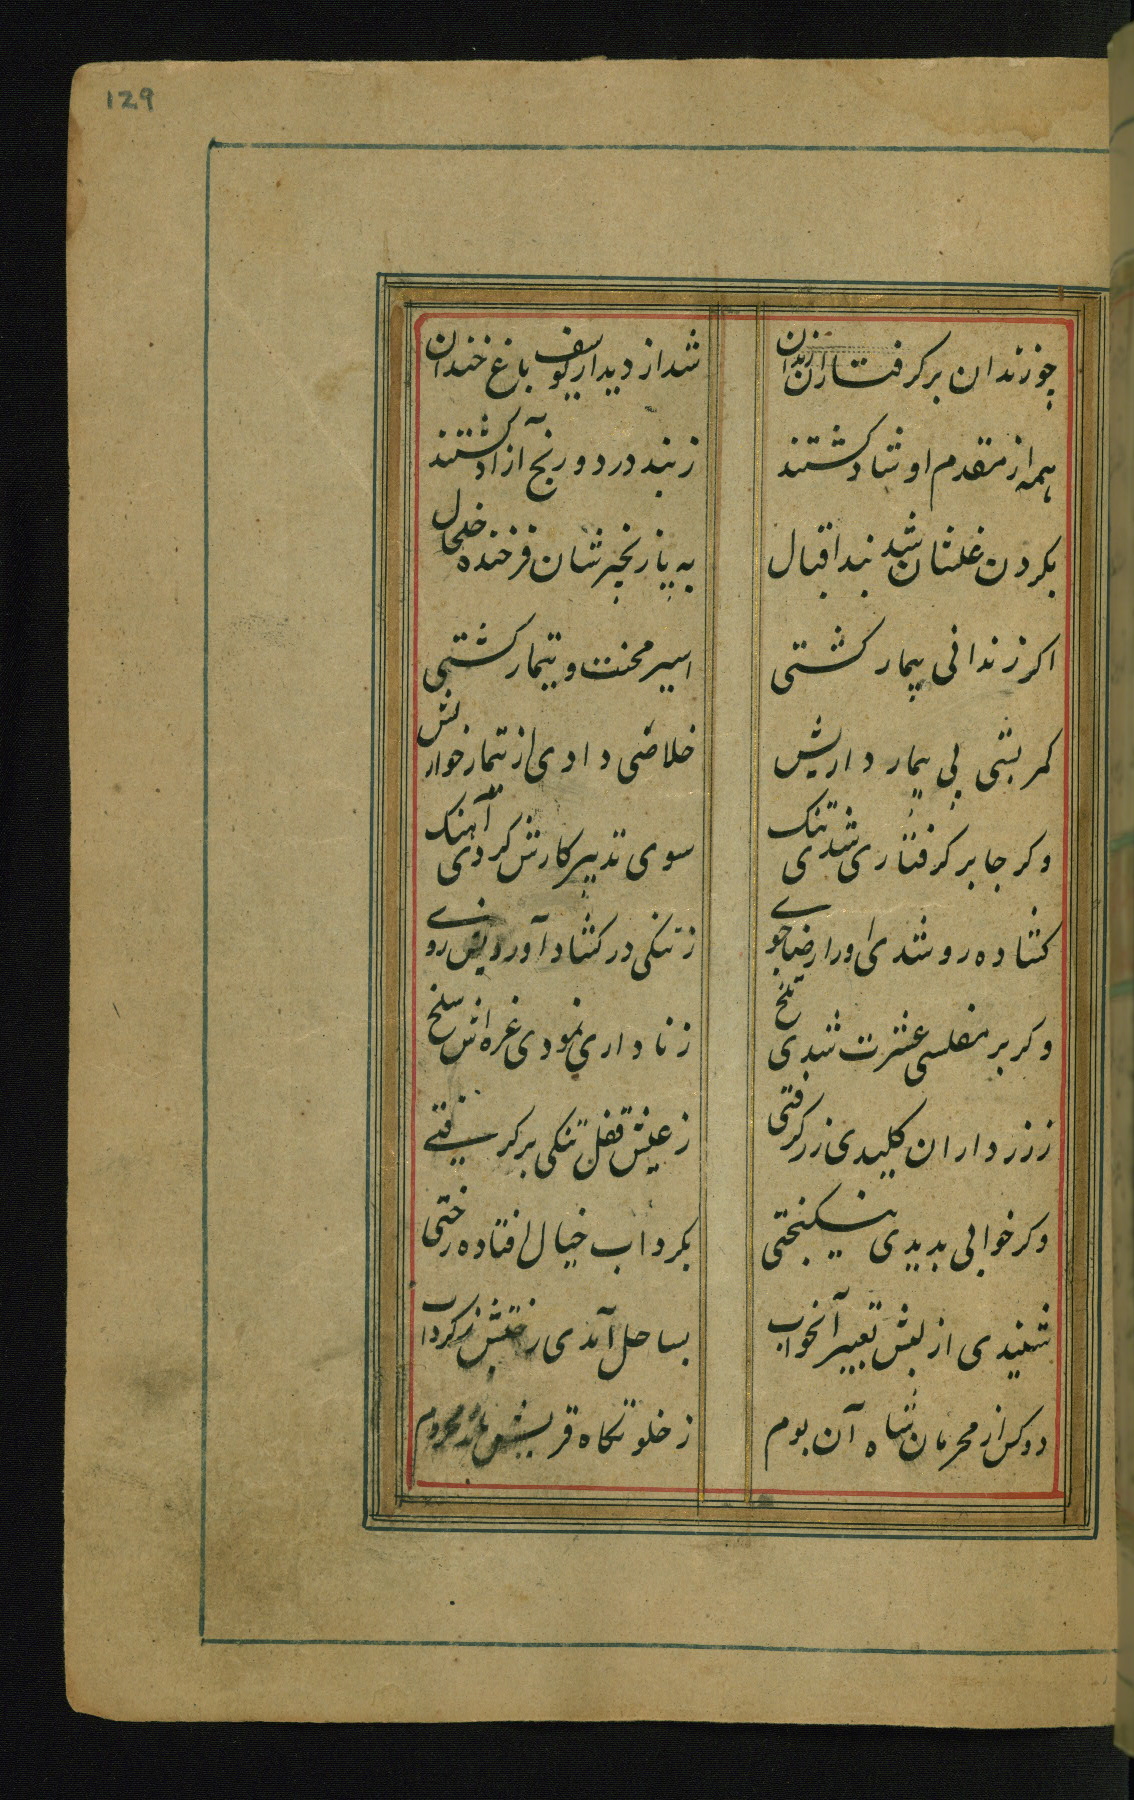 129
چو زندان بر کرفتاران زندان شد از دیدار یوسف باغ خندان
همه از مقدم او شاد کشتند ز بند درد و رنج آزاد کشتند
بکردن غلشان شد بند اقبال به پا زنجیرشان فرخنده خلخال
اکر زندانی بیمار کشتی اسیر محنت و تیمار کشتی
کمر بستی پی بیمار داریش خلاصی دادی از تیمار خواریش
وکر جا بر کرفتاری شدی تنک سوی تدبیر کارش کردی آهنک
کشاده رو شدی او را رضا جوی ز تنکی در کشاد آوردیش روی
وکر بر مفلسی عشرت شدی تلخ ز ناداری نمودی غره اش سلخ
ز زرداران کلیدی زر کرفتی ز عیشش قفل تنکی بر کرفتی
وکر خوابی بدیدی نیکبختی بکرداب خیال افتاده رختی
شنیدی از لبش تعبیر آنخواب بساحل آمدی رختش ز کرداب
دو کس از محرمان شاه آن بوم ز خلوتکاه قربش مانده محروم